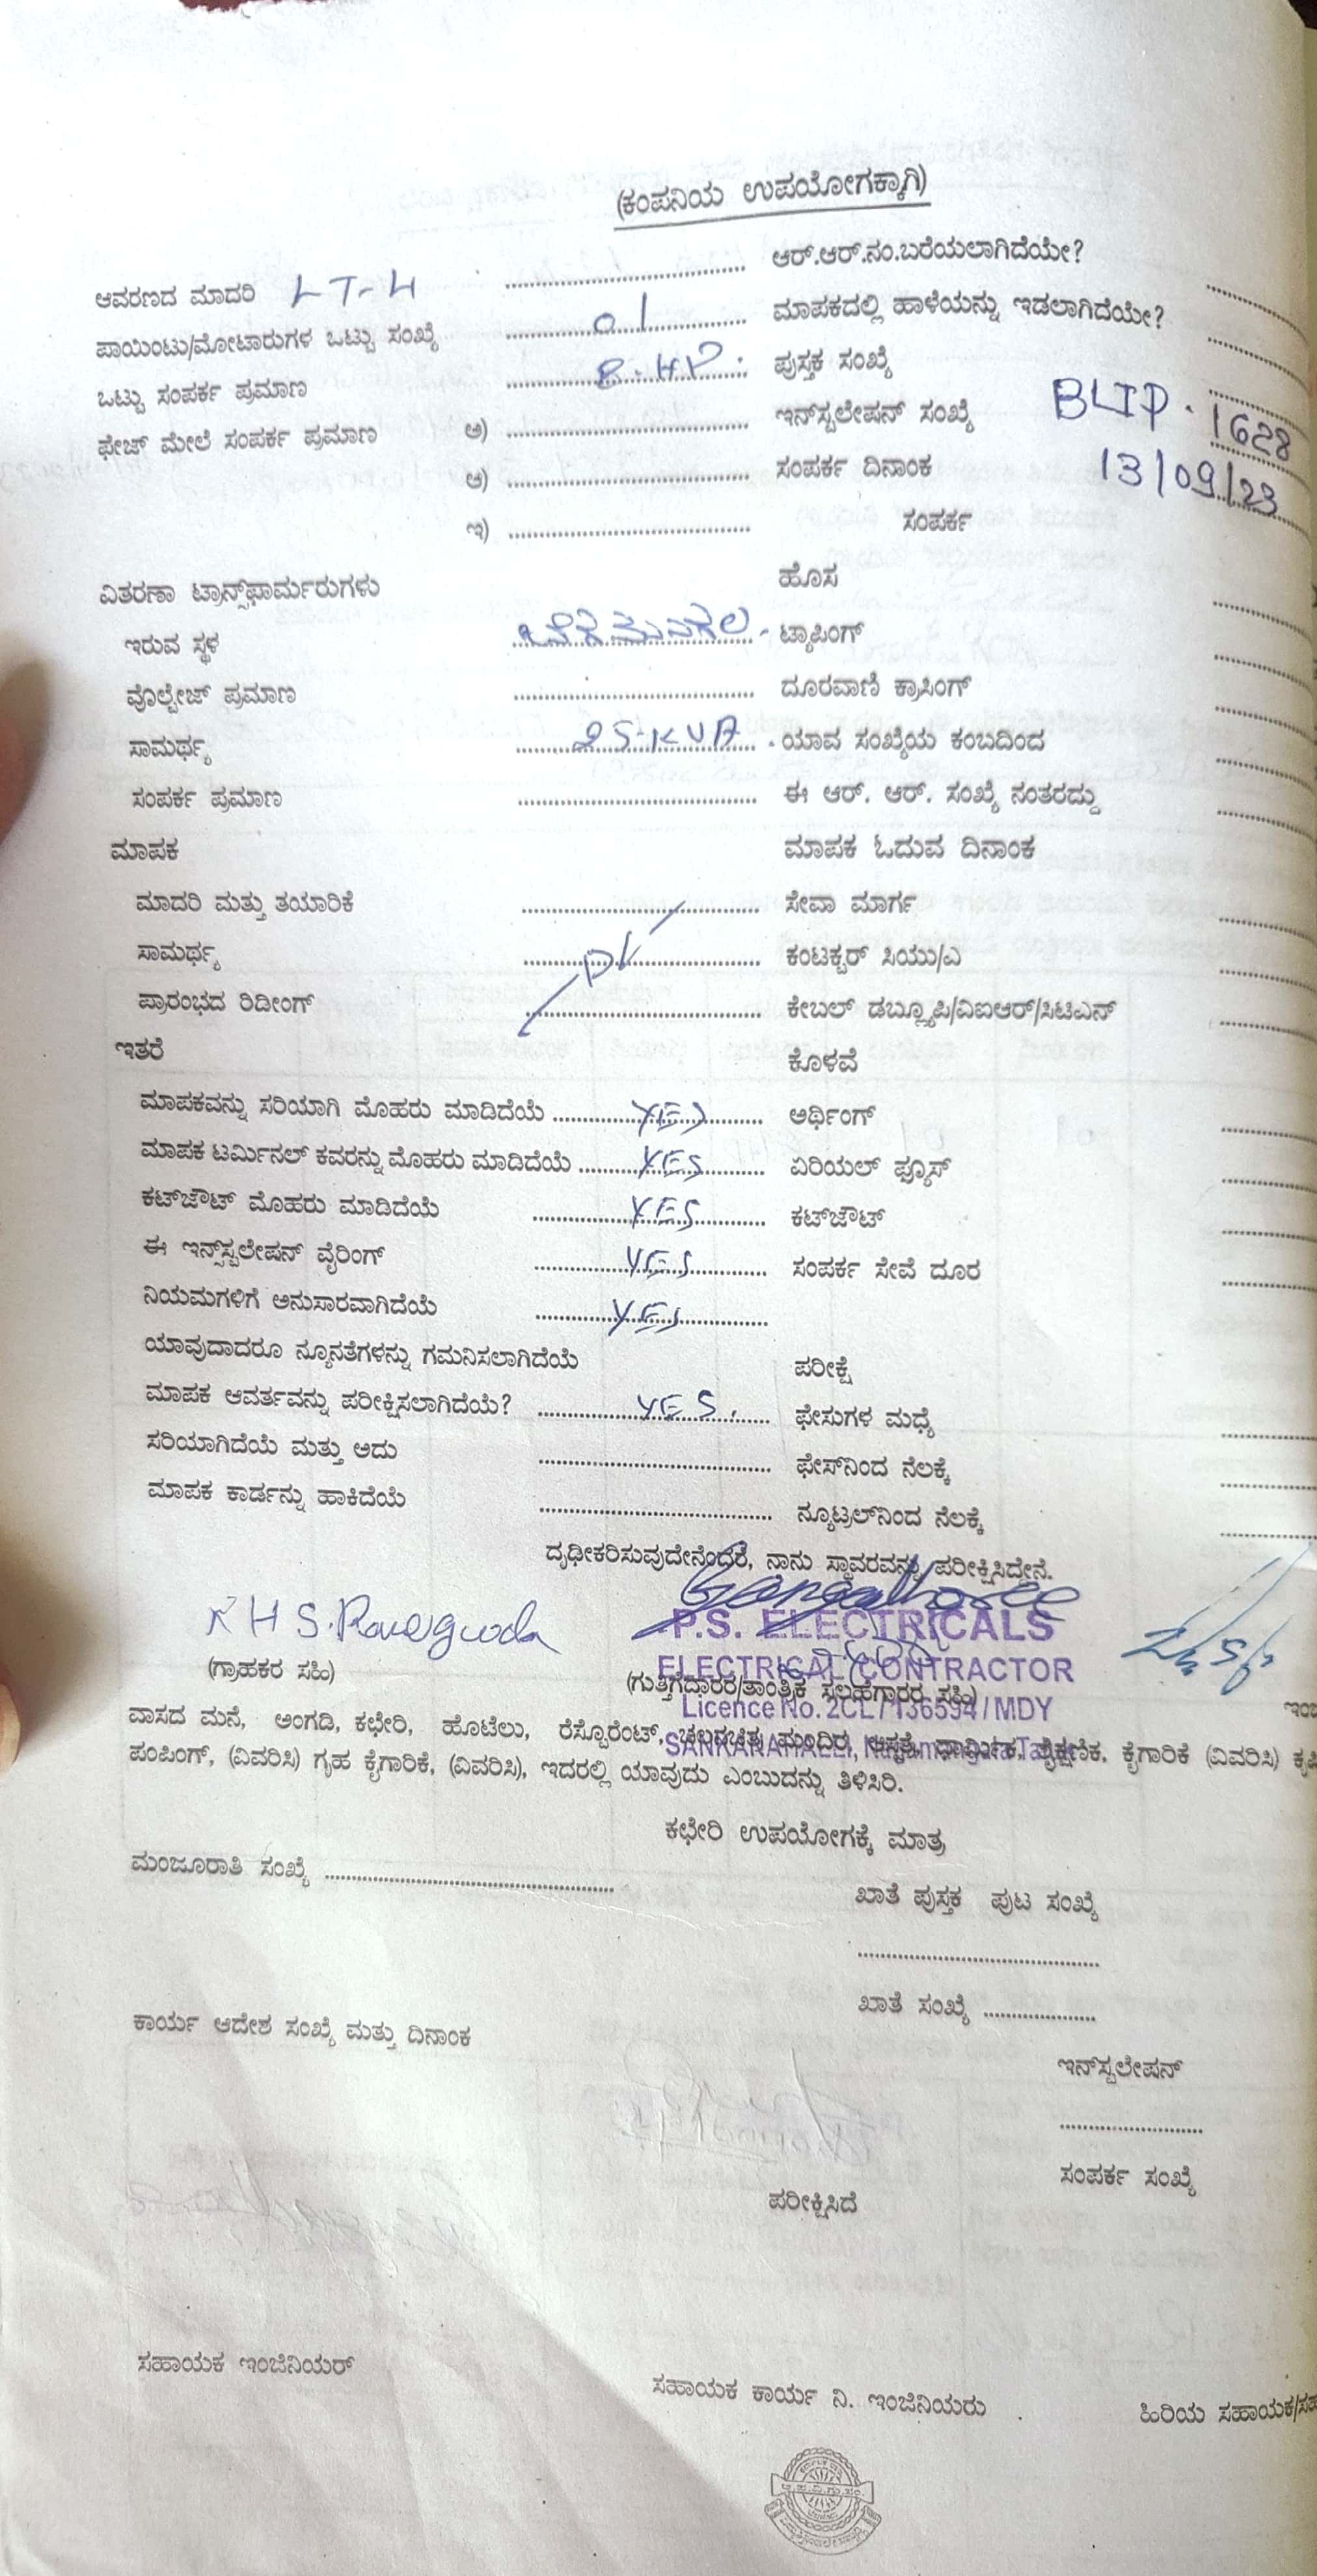 (ಕಂಪನಿಯ ಉಪಯೋಗಕ್ಕಾಗಿ)
ಆವರಣದ ಮಾದರಿ LT-4 .................... ಆರ್.ಆರ್.ನಂ.ಬರೆಯಲಾಗಿದೆಯೇ? ....................
ಪಾಯಿಂಟು/ಮೋಟಾರುಗಳ ಒಟ್ಟು ಸಂಖ್ಯೆ 01 ಮಾಪಕದಲ್ಲಿ ಹಾಳೆಯನ್ನು ಇಡಲಾಗಿದೆಯೇ? ....................
ಒಟ್ಟು ಸಂಪರ್ಕ ಪ್ರಮಾಣ 8-HP. ಪುಸ್ತಕ ಸಂಖ್ಯೆ ....................
ಫೇಜ್ ಮೇಲೆ ಸಂಪರ್ಕ ಪ್ರಮಾಣ ಅ) .................... ಇನ್‌ಸ್ಟಲೇಷನ್ ಸಂಖ್ಯೆ 1628
ಆ) .................... ಸಂಪರ್ಕ ದಿನಾಂಕ 13/09/23
ಇ) .................... ಸಂಪರ್ಕ
ವಿತರಣಾ ಟ್ರಾನ್ಸ್‌ಫಾರ್ಮರುಗಳು ಹೊಸ ....................
ಇರುವ ಸ್ಥಳ ಟ್ಯಾಪಿಂಗ್ ....................
ವೊಲ್ಟೇಜ್ ಪ್ರಮಾಣ .................... ದೂರವಾಣಿ ಕ್ರಾಸಿಂಗ್ ....................
ಸಾಮರ್ಥ್ಯ 25-KVA. ಯಾವ ಸಂಖ್ಯೆಯ ಕಂಬದಿಂದ ....................
ಸಂಪರ್ಕ ಪ್ರಮಾಣ .................... ಈ ಆರ್. ಆರ್. ಸಂಖ್ಯೆ ನಂತರದ್ದು ....................
ಮಾಪಕ ಮಾಪಕ ಓದುವ ದಿನಾಂಕ
ಮಾದರಿ ಮತ್ತು ತಯಾರಿಕೆ .................... ಸೇವಾ ಮಾರ್ಗ ....................
ಸಾಮರ್ಥ್ಯ .................... ಕಂಟಕ್ಟರ್ ಸಿಯು/ಎ ....................
ಪ್ರಾರಂಭದ ರಿಡೀಂಗ್ .................... ಕೇಬಲ್ ಡಬ್ಲ್ಯೂಪಿ/ಎಐಆರ್/ಸಿಟಿಎನ್ ....................
ಇತರೆ ಕೊಳವೆ
ಮಾಪಕವನ್ನು ಸರಿಯಾಗಿ ಮೊಹರು ಮಾಡಿದೆಯೆ YES ಅರ್ಥಿಂಗ್ ....................
ಮಾಪಕ ಟರ್ಮಿನಲ್ ಕವರನ್ನು ಮೊಹರು ಮಾಡಿದೆಯೆ YES ಏರಿಯಲ್ ಫ್ಯೂಸ್ ....................
ಕಟ್‌ಜೌಟ್ ಮೊಹರು ಮಾಡಿದೆಯೆ YES ಕಟ್‌ಜೌಟ್ ....................
ಈ ಇನ್ಸ್‌ಸ್ಟಲೇಷನ್ ವೈರಿಂಗ್ YES ಸಂಪರ್ಕ ಸೇವೆ ದೂರ ....................
ನಿಯಮಗಳಿಗೆ ಅನುಸಾರವಾಗಿದೆಯೆ YES
ಯಾವುದಾದರೂ ನ್ಯೂನತೆಗಳನ್ನು ಗಮನಿಸಲಾಗಿದೆಯೆ ಪರೀಕ್ಷೆ
ಮಾಪಕ ಆವರ್ತವನ್ನು ಪರೀಕ್ಷಿಸಲಾಗಿದೆಯೆ? YES. ಫೇಸುಗಳ ಮಧ್ಯೆ ....................
ಸರಿಯಾಗಿದೆಯೆ ಮತ್ತು ಅದು .................... ಫೇಸ್‌ನಿಂದ ನೆಲಕ್ಕೆ ....................
ಮಾಪಕ ಕಾರ್ಡನ್ನು ಹಾಕಿದೆಯೆ .................... ನ್ಯೂಟ್ರಲ್‌ನಿಂದ ನೆಲಕ್ಕೆ ....................
ದೃಢೀಕರಿಸುವುದೇನೆಂದರೆ, ನಾನು ಸ್ಥಾವರವನ್ನು ಪರೀಕ್ಷಿಸಿದ್ದೇನೆ.
K H S.
P.S. ELECTRICALS
ELECTRICAL CONTRACTOR
(ಗ್ರಾಹಕರ ಸಹಿ) (ಗುತ್ತಿಗೆದಾರರ/ತಾಂತ್ರಿಕ ಸಲಹೆಗಾರರ ಸಹಿ)
Licence No. 2CL / 136594 / MDY
SANKARAHALLI, Nagamangala Taluk
ವಾಸದ ಮನೆ, ಅಂಗಡಿ, ಕಛೇರಿ, ಹೊಟೆಲು, ರೆಸ್ಟೊರೆಂಟ್, ಚಲನಚಿತ್ರ ಮಂದಿರ, ಆಸ್ಪತ್ರೆ, ಧಾರ್ಮಿಕ, ಶೈಕ್ಷಣಿಕ, ಕೈಗಾರಿಕೆ (ವಿವರಿಸಿ)
ಪಂಪಿಂಗ್, (ವಿವರಿಸಿ) ಗೃಹ ಕೈಗಾರಿಕೆ, (ವಿವರಿಸಿ), ಇದರಲ್ಲಿ ಯಾವುದು ಎಂಬುದನ್ನು ತಿಳಿಸಿರಿ.
ಕಛೇರಿ ಉಪಯೋಗಕ್ಕೆ ಮಾತ್ರ
ಮಂಜೂರಾತಿ ಸಂಖ್ಯೆ ....................
ಖಾತೆ ಪುಸ್ತಕ ಪುಟ ಸಂಖ್ಯೆ
....................
ಖಾತೆ ಸಂಖ್ಯೆ ....................
ಕಾರ್ಯ ಆದೇಶ ಸಂಖ್ಯೆ ಮತ್ತು ದಿನಾಂಕ
ಇನ್‌ಸ್ಟಲೇಷನ್
....................
ಸಂಪರ್ಕ ಸಂಖ್ಯೆ
ಪರೀಕ್ಷಿಸಿದೆ
ಸಹಾಯಕ ಇಂಜಿನಿಯರ್ ಸಹಾಯಕ ಕಾರ್ಯ ನಿ. ಇಂಜಿನಿಯರು ಹಿರಿಯ ಸಹಾಯಕ/